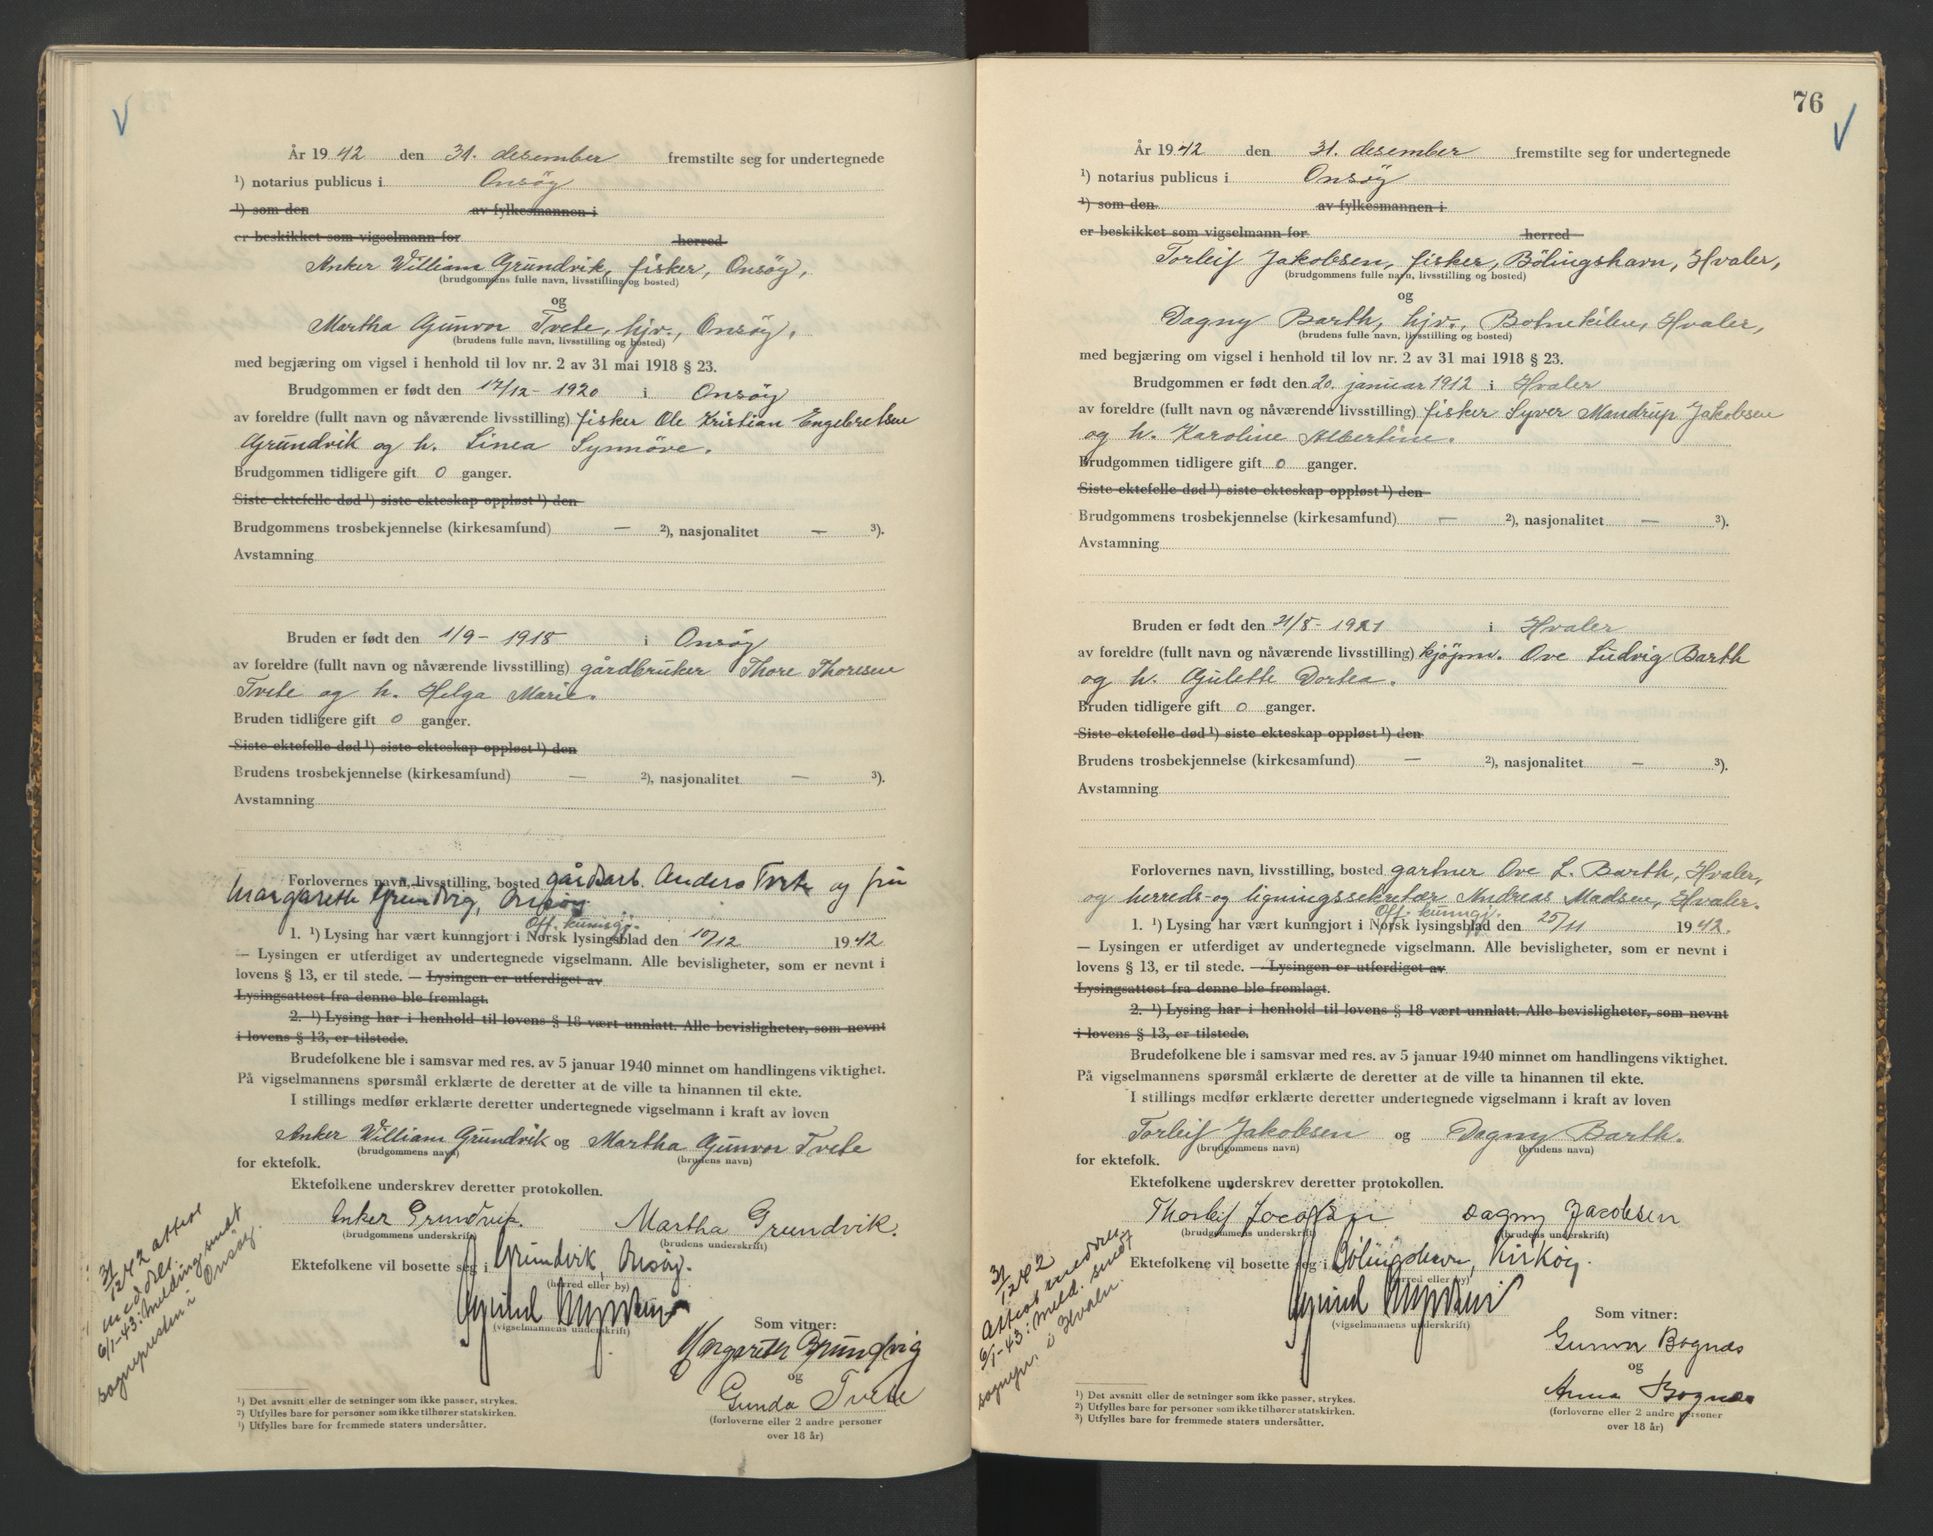 År 1942 den 31. desember fremstilte seg for undertegnede
¹) notarius publicus i Onsöy
¹) som den av fylkesmannen i
er beskikket som vigselmann for herred
Anker William Grundvik, fisker, Onsöy,
(brudgommens fulle navn, livsstilling og bosted)
og
Martha Gunvor Tvete, hjv., Onsöy,
(brudens fulle navn, livsstilling og bosted)
med begjæring om vigsel i henhold til lov nr. 2 av 31 mai 1918 § 23.
Brudgommen er født den 17/12 - 1920 i Onsöy
av foreldre (fullt navn og nåværende livsstilling) fisker Ole Kristian Engebretsen
Grundvik og h. Linea Synnöve.
Brudgommen tidligere gift 0 ganger.
Siste ektefelle død ¹) siste ekteskap oppløst ¹) den
Brudgommens trosbekjennelse (kirkesamfund) — ²), nasjonalitet — ³).
Avstamning
Bruden er født den 1/9 - 1918 i Onsöy
av foreldre (fullt navn og nåværende livsstilling) gårdbruker Thore Thoresen
Tvete og h. Helga Marie.
Bruden tidligere gift 0 ganger.
Siste ektefelle død ¹) siste ekteskap oppløst ¹) den
Brudens trosbekjennelse (kirkesamfund) — ²), nasjonalitet — ³).
Avstamning
Forlovernes navn, livsstilling, bosted gårdsarb. Anders Tvete og fru
Margareth Grundvig, Onsöy
Off. kunngj.
1. ¹) Lysing har vært kunngjort i Norsk lysingsblad den 10/12 1942
— Lysingen er utferdiget av undertegnede vigselmann. Alle bevisligheter, som er nevnt i
lovens § 13, er til stede. — Lysingen er utferdiget av
Lysingsattest fra denne ble fremlagt.
2. ¹) Lysing har i henhold til lovens § 18 vært unnlatt. Alle bevisligheter, som nevnt
i lovens § 13, er tilstede.
Brudefolkene ble i samsvar med res. av 5 januar 1940 minnet om handlingens viktighet.
På vigselmannens spørsmål erklærte de deretter at de ville ta hinannen til ekte.
I stillings medfør erklærte deretter undertegnede vigselmann i kraft av loven
Anker William Grundvik og Martha Gunvor Tvete
(brudgommens navn) (brudens navn)
for ektefolk.
Ektefolkene underskrev deretter protokollen.
Anker Grundvik. Martha Grundvik.
(brudgommens underskrift) (brudens underskrift)
Ektefolkene vil bosette seg i Grundvik, Onsöy.
(herred eller by)
(vigselmannens underskrift)
Som vitner:
Margareth Grundvig
og
Gunda Tvete
(forloverne eller 2 andre personer
over 18 år)
¹) Det avsnitt eller de setninger som ikke passer, strykes.
²) Utfylles bare for personer som ikke tilhører statskirken.
¹) Utfylles bare for fremmede staters undersåtter.
31/12 42 attest
meddelt.
6/1-43: Melding sendt
sognepresten i Onsöy.
76
År 1942 den 31. desember fremstilte seg for undertegnede
¹) notarius publicus i Onsöy
¹) som den av fylkesmannen i
er beskikket som vigselmann for herred
Torleif Jakobsen, fisker, Bölingshavn, Hvaler,
(brudgommens fulle navn, livsstilling og bosted)
og
Dagny Barth, hjv., Botnekilen, Hvaler,
(brudens fulle navn, livsstilling og bosted)
med begjæring om vigsel i henhold til lov nr. 2 av 31 mai 1918 § 23.
Brudgommen er født den 20. januar 1912 i Hvaler
av foreldre (fullt navn og nåværende livsstilling) fisker Syver Mandrup Jakobsen
og h. Karoline Albertine.
Brudgommen tidligere gift 0 ganger.
Siste ektefelle død ¹) siste ekteskap oppløst ¹) den
Brudgommens trosbekjennelse (kirkesamfund) — ²), nasjonalitet — ³).
Avstamning
Bruden er født den 21/8 - 1921 i Hvaler
av foreldre (fullt navn og nåværende livsstilling) kjöpm. Ove Ludvig Barth
og h. Gulette Dortea.
Bruden tidligere gift 0 ganger.
Siste ektefelle død ¹) siste ekteskap oppløst ¹) den
Brudens trosbekjennelse (kirkesamfund) — ²), nasjonalitet — ³).
Avstamning
Forlovernes navn, livsstilling, bosted gartner Ove L. Barth, Hvaler,
og herreds- og ligningssekretær Andreas Madsen, Hvaler.
Off. kunngj.
1. ¹) Lysing har vært kunngjort i Norsk lysingsblad den 25/11 1942.
— Lysingen er utferdiget av undertegnede vigselmann. Alle bevisligheter, som er nevnt i
lovens § 13, er til stede. — Lysingen er utferdiget av
Lysingsattest fra denne ble fremlagt.
2. ¹) Lysing har i henhold til lovens § 18 vært unnlatt. Alle bevisligheter, som nevnt
i lovens § 13, er tilstede.
Brudefolkene ble i samsvar med res. av 5 januar 1940 minnet om handlingens viktighet.
På vigselmannens spørsmål erklærte de deretter at de ville ta hinannen til ekte.
I stillings medfør erklærte deretter undertegnede vigselmann i kraft av loven
Torleif Jakobsen og Dagny Barth.
(brudgommens navn) (brudens navn)
for ektefolk.
Ektefolkene underskrev deretter protokollen.
Thorleif Jacobsen Dagny Jacobsen
(brudgommens underskrift) (brudens underskrift)
Ektefolkene vil bosette seg i Bölingshavn, Kirköy.
(herred eller by)
(vigselmannens underskrift)
Som vitner:
Gunvor Bognæs
og
Anna Bognæs
(forloverne eller 2 andre personer
over 18 år)
¹) Det avsnitt eller de setninger som ikke passer, strykes.
²) Utfylles bare for personer som ikke tilhører statskirken.
³) Utfylles bare for fremmede staters undersåtter.
31/12 42
Attest meddelt
6/1-43: meld. sendt
sognepr. i Hvaler.